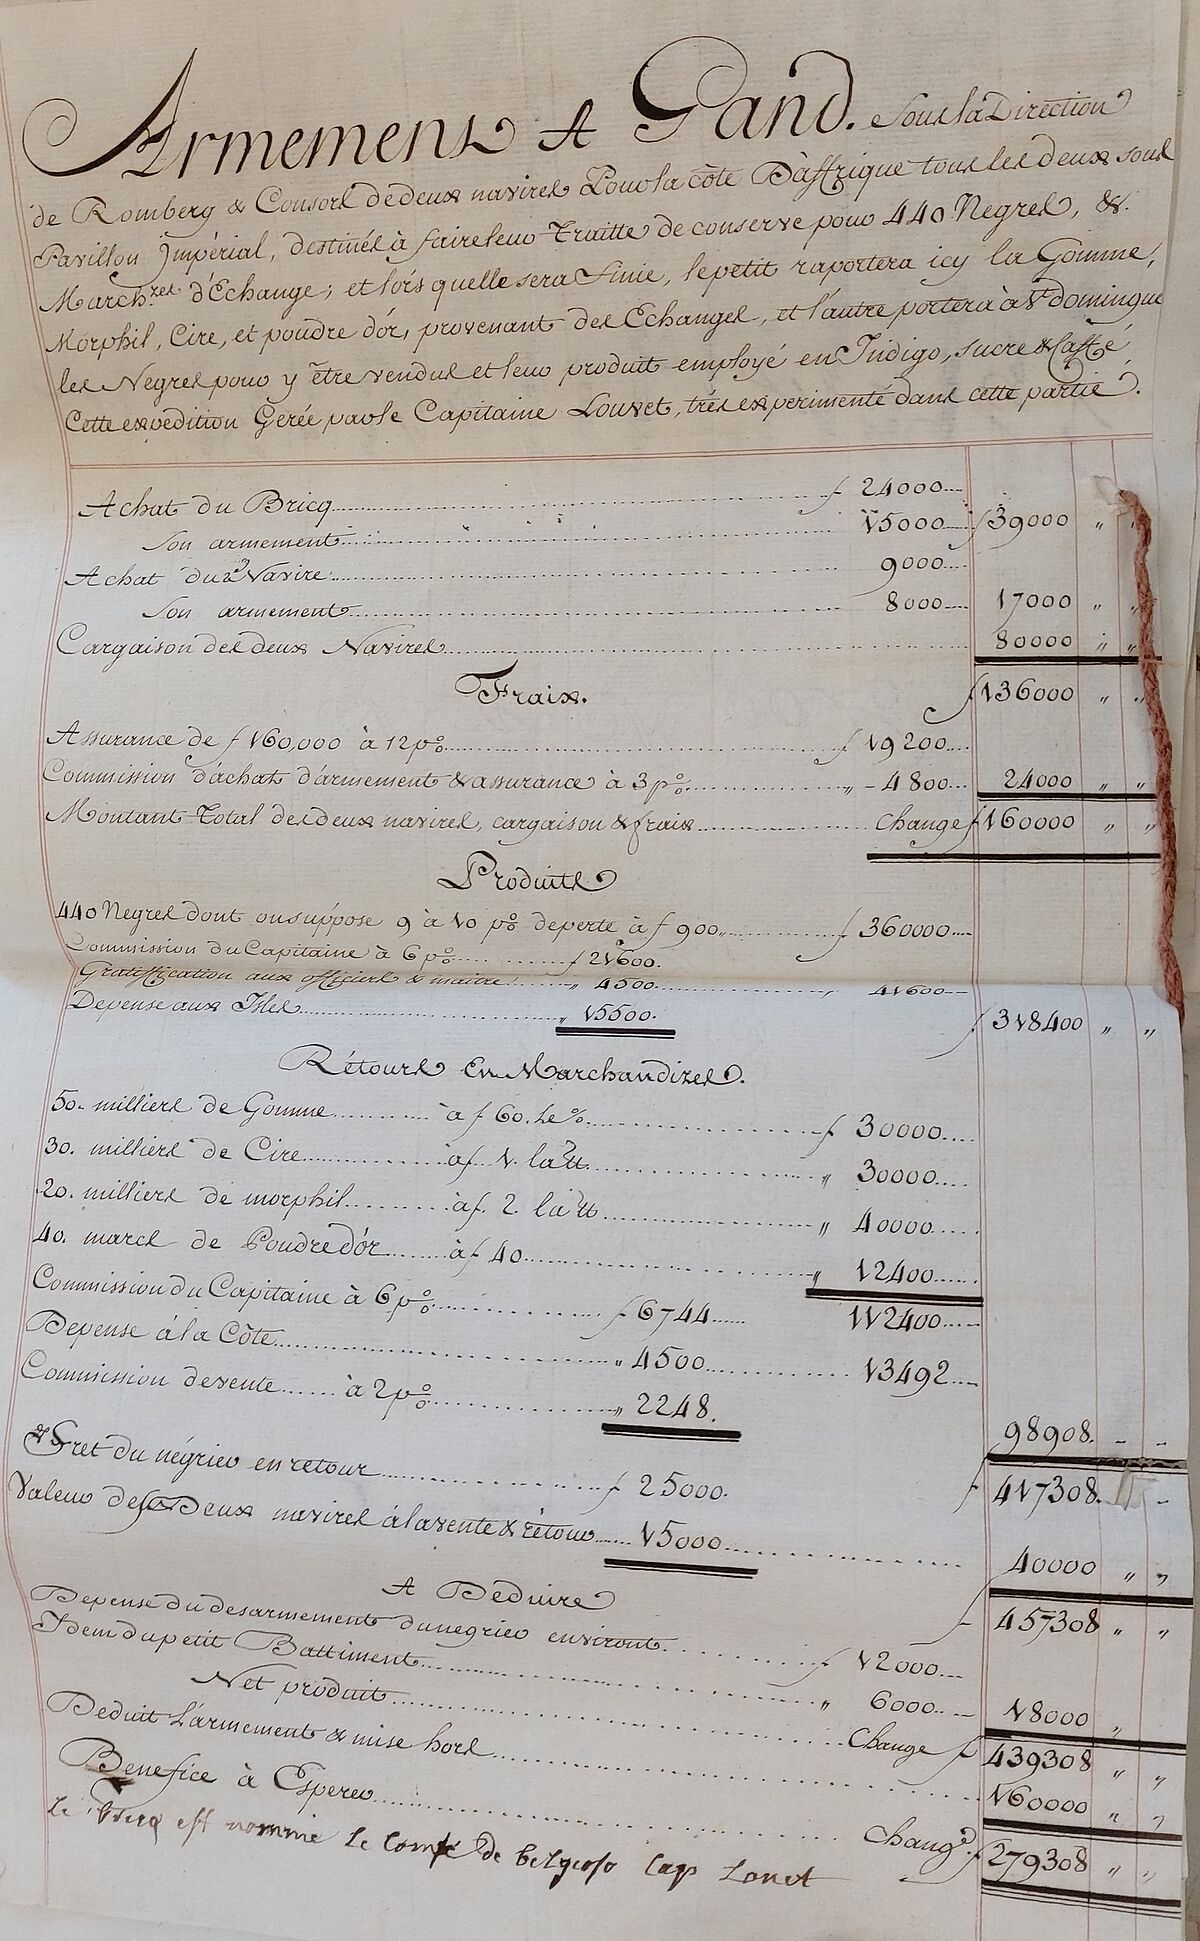 Armement A Gand. Sous la Direction
de Romberg & Consors de deux navires Pour la côte D'affrique tous les deux sous
Pavillon Jmpérial, destinés à faire leur Traitte de conserve pour 440 Negres, &c.
March.res d'Échange; et lors quelle sera finie, le petit raportera icy la Gomme,
Morphil, Cire, et poudre d'ór, provenant des Echanges, et l'autre portera à St. domingue
les Negres pour y être vendus et leur produit employé en Indigo, sucre & Caffé
Cette expédition Gerée par le Capitaine Louvet, trés expérimenté dans cette partie.
Achat du Bricq f 24000
Son armement 15000 f 39000 " "
Achat du 2e Navire 9000
Son armement 8000 17000 " "
Cargaison des deux Navires 80000 " "
Fraix. f 136000 " "
Assurance de f 160,000 à 12 p% f 19200
Commission d'achat d'armement & assurance à 3 p% " 4800 24000 " "
Montant Total des deux navires, cargaison & fraix change f 160000 " "
Produits
440 Negres dont on suppose 9 à 10 p% de perte à f 900 f 360000
Commission du Capitaine à 6 p% f 21600.
Gratiffication aux officiers & maitre " 4500 " 41600
Depense aux Isles " 15500. f 318400 " "
Rétours En Marchandizes.
50. milliers de Gomme à f 60. le % f 30000
30. milliers de Cire à f 1. la lb " 30000
20. milliers de morphil à f. 2. la lb " 40000
40. marcs de Poudre d'ór à f 40 " 12400
Commission du Capitaine à 6 p% f 6744 112400
Depense à la Côte " 4500 13492
Commission de vente à 2 p% " 2248. 98908.
& Fret du négrier en retour f 25000. f 417308.
Valeur des Deux navires à la vente & rétour 15000 40000 " "
A Déduire 457308 " "
Depense du desarmement du negrier environt f 12000
Idem du petit Battiment " 6000 18000 "
Net produit Change f 439308 " "
Deduit L'armement & mise hors 160000 " "
Benefice à Esperer Change f 279308 " "
le Bricq est nommé le Comte de belgioso Cap Louet